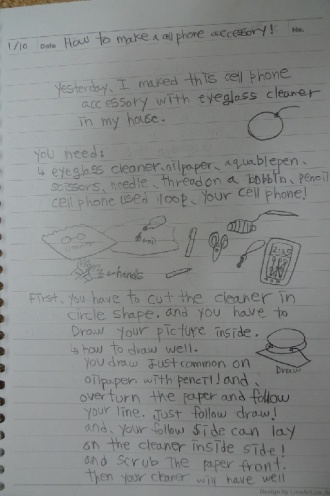 1/10 Date How to make a cell phone accessory! No.
Yesterday, I maked this cell phone
accessory with eyeglass cleaner
in my house.
You need:
↳ eyeglass cleaner, oilpaper, aquablepen,
scissors, needle, thread on a bobbin, pencil
cell phone used loop, your cell phone!
hands
First, you have to cut the cleaner in
circle shape. and you have to
Draw your picture inside.
↳ how to draw well.
you draw just common on
oilpaper with pencil! and,
overturn the paper and follow
your line. Just follow draw!
and, your follow side can lay
on the cleaner inside side!
and scrub the paper front.
then your cleaner will have well
Draw